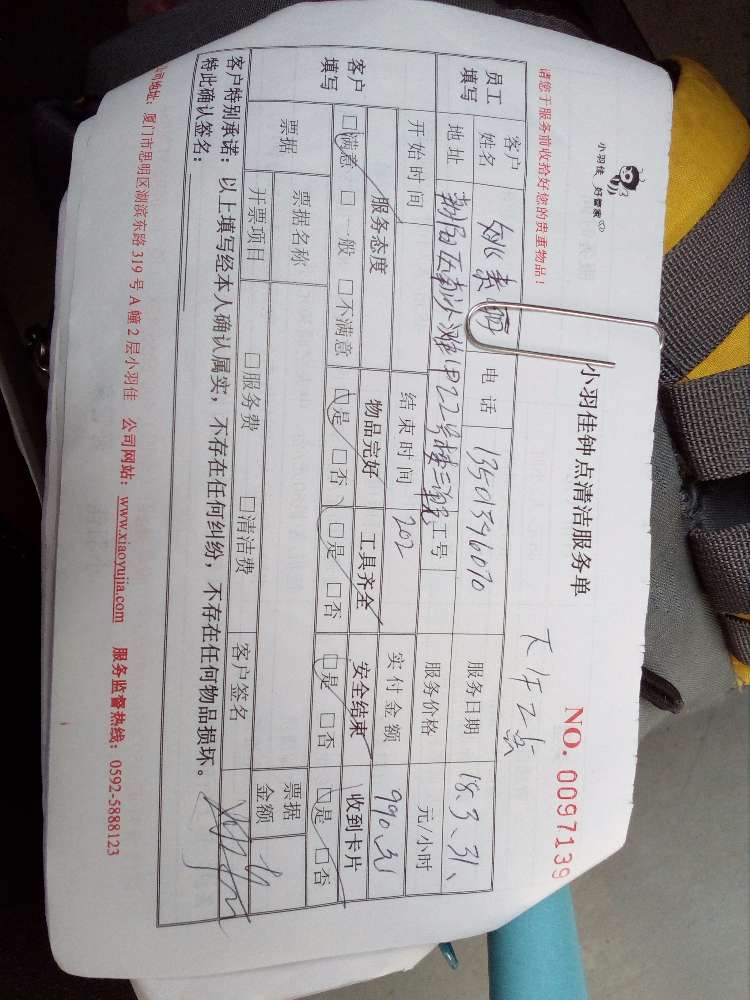 小羽佳 好管家
小羽佳钟点清洁服务单
NO. 0097139
请您于服务前收拾好您的贵重物品！
下午2点
员工填写 客户姓名 电话 13501396070 服务日期 18.3.31、
地址 22号楼三单元 工号 服务价格 元/小时
开始时间 结束时间 202 实付金额 990元
客户填写 服务态度 物品完好 工具齐全 安全结束 收到卡片
□满意 □一般 □不满意 □是 □否 □是 □否 □是 □否 □是 □否
票据 票据名称 客户签名 票据金额
开票项目 □服务费 □清洁费
客户特别承诺：以上填写经本人确认属实，不存在任何纠纷，不存在任何物品损坏。
特此确认签名：
公司地址：厦门市思明区湖滨东路 319 号 A 幢 2 层小羽佳 公司网站：www.xiaoyujia.com 服务监督热线：0592-5888123